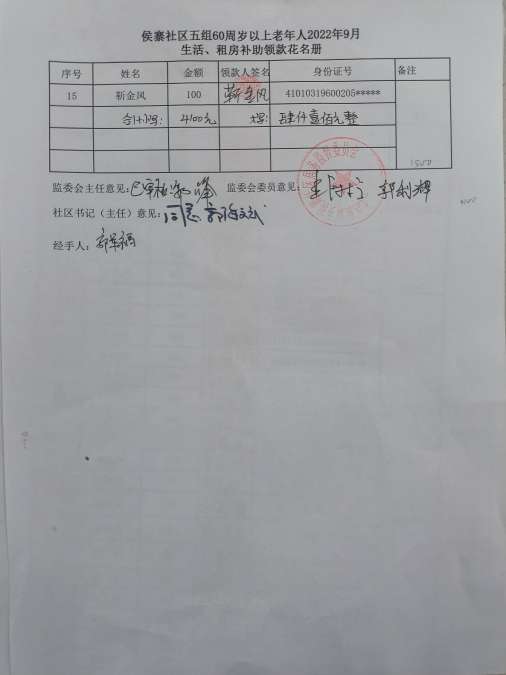 侯寨社区五组60周岁以上老年人2022年9月
生活、租房补助领款花名册
序号 姓名 金额 领款人签名 身份证号 备注
15 靳金凤 100 靳金凤 41010319600205*****
合计小写: 4100元 大写: 肆仟壹佰元整
监委会主任意见: 监委会委员意见: 郭利辉
社区书记（主任）意见: 同意
经手人: